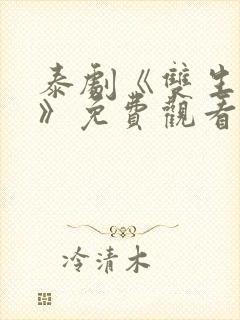 泰劇《雙生
》免費觀看
冷清木